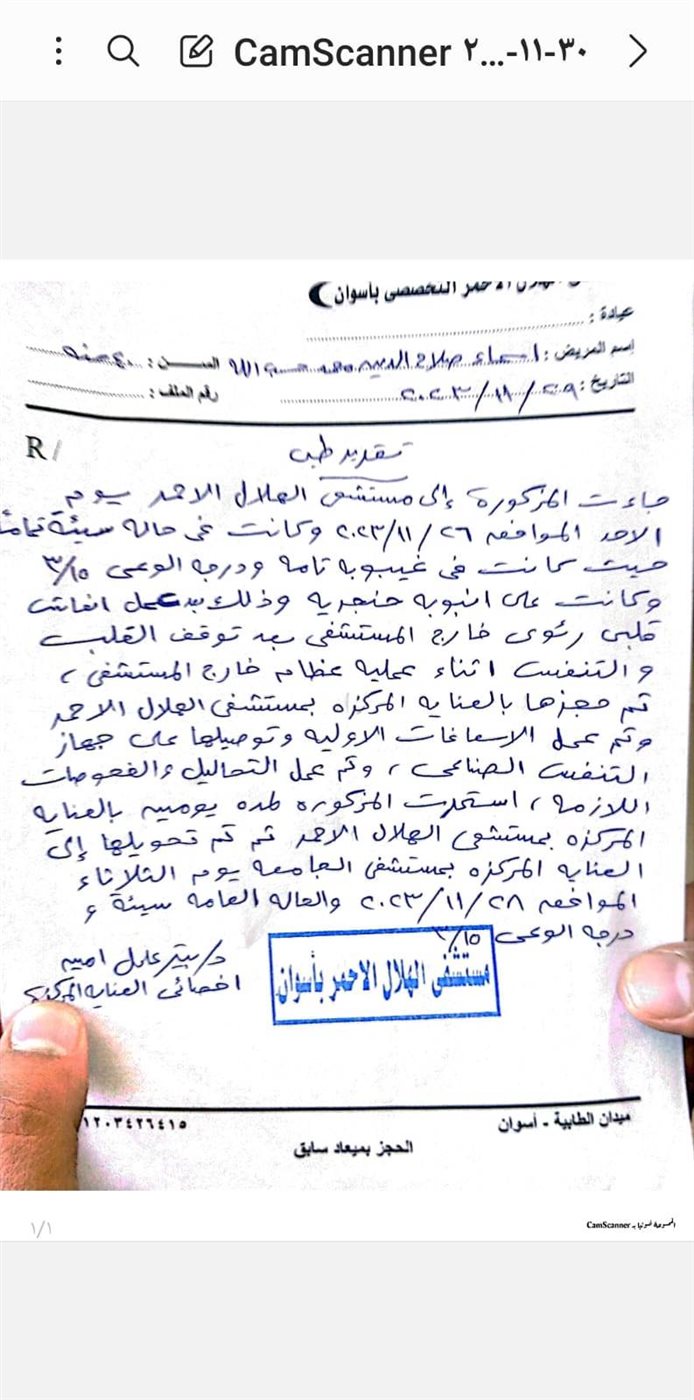 CamScanner ٢...-١١-٣٠
الهلال الاحمر التخصصى بأسوان
عيادة :
إسم المريض : اسماء صلاح الدين محمد حسب الله السن : ٤٠ سنه
التاريخ : ٢٩/١١/٢٠٢٣ رقم الملف :
R/
تقرير طبى
جاءت المزكورة إلى مستشفى الهلال الاحمر يوم
الاحد الموافق ٢٦/١١/٢٠٢٣ وكانت فى حاله سيئة تماما
حيث كانت فى غيبوبه تامه ودرجه الوعى ٣/١٥
وكانت على انبوبه حنجريه وذلك بعد عمل انعاش
قلبى رئوى خارج المستشفى بعد توقف القلب
والتنفس اثناء عمليه عظام خارج المستشفى ،
تم حجزها بالعنايه المركزه بمستشفى الهلال الاحمر
وتم عمل الاسعافات الاوليه وتوصيلها على جهاز
التنفس الصناعى ، وتم عمل التحاليل والفحوصات
اللازمه ، استمرت المزكوره لمده يومين بالعنايه
المركزه بمستشفى الهلال الاحمر ثم تم تحويلها إلى
العنايه المركزه بمستشفى الجامعه يوم الثلاثاء
الموافق ٢٨/١١/٢٠٢٣ والحاله العامه سيئة و
درجه الوعى ٣/١٥
د/ بيتر عادل امين
اخصائى العنايه المركزة
مستشفى الهلال الاحمر بأسوان
ميدان الطابية - أسوان
١٢٠٣٤٢٦٤١٥
الحجز بميعاد سابق
الممسوحة ضوئيا بـ CamScanner
١/١